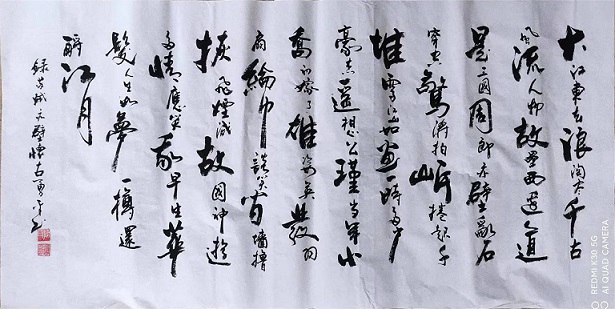 大江東去浪淘盡千古
風流人物故壘西邊人道
是三國周郎赤壁亂石
穿空驚濤拍岸捲起千
堆雪江山如畫一時多少
豪杰遙想公瑾當年小
喬初嫁了雄姿英發羽
扇綸巾談笑間檣櫓
飛煙滅故國神遊
多情應笑我早生華
髮人生如夢一樽還
酹江月
錄苏轼赤壁懷古
REDMI K30 5G
AI QUAD CAMERA